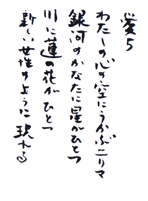 愛5
わたしの心の空にうかぶニリマ
銀河のかなたに星がひとつ
川に蓮の花がひとつ
新しい女性のように現れる